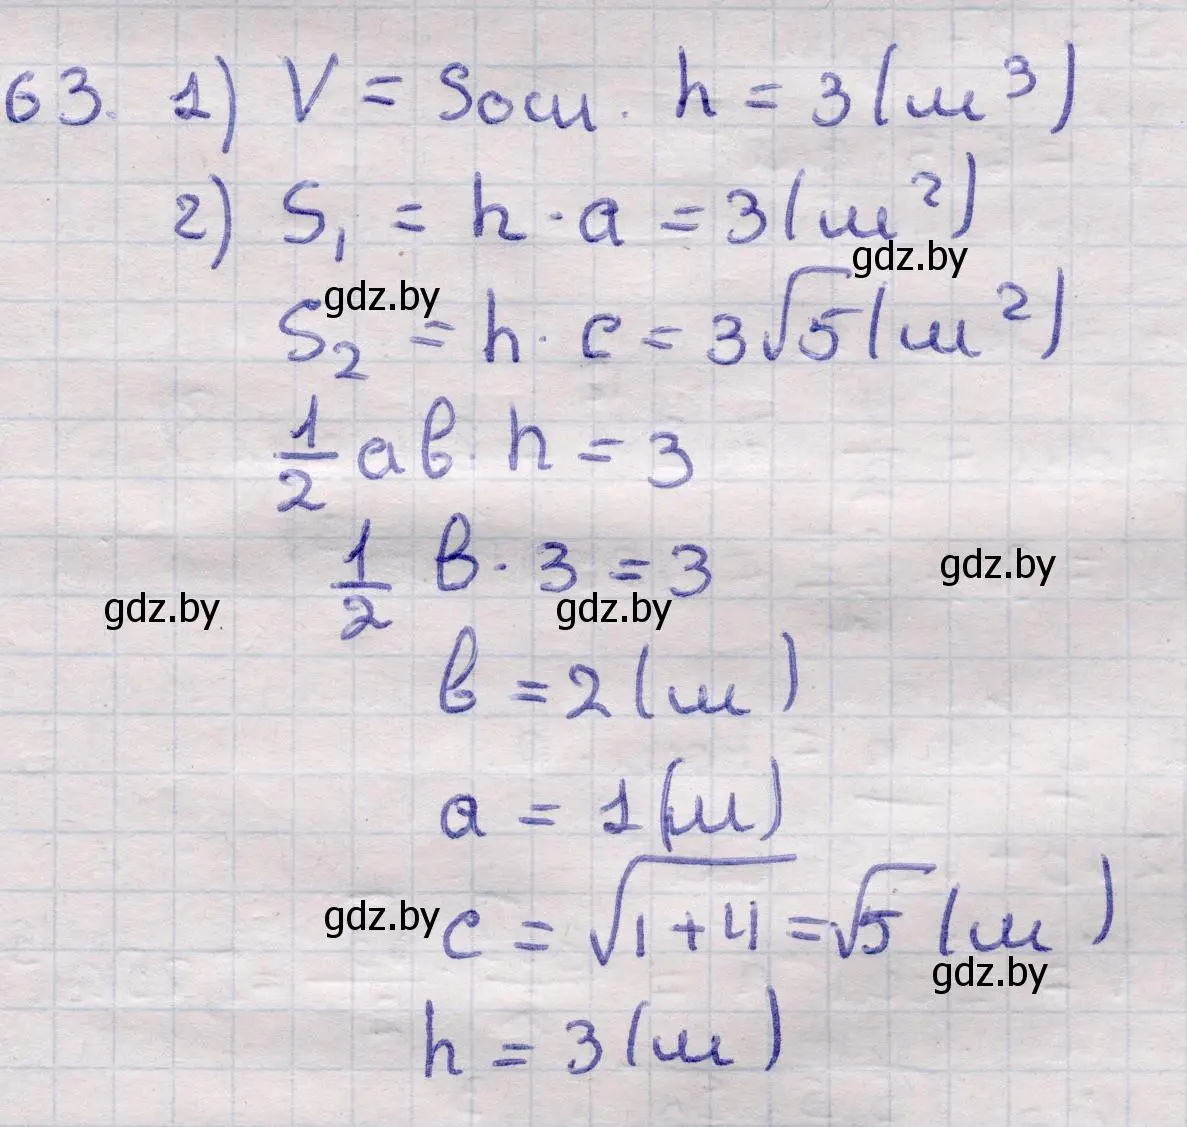 63. 1) V = Sосн. h = 3 (м³)
2) S₁ = h · a = 3 (м²)
gdz.by
gdz.by
S₂ = h · c = 3√5 (м²)
1/2 ab · h = 3
1/2 b · 3 = 3
gdz.by
gdz.by
gdz.by
b = 2 (м)
a = 1 (м)
c = √(1+4) = √5 (м)
gdz.by
gdz.by
h = 3 (м)